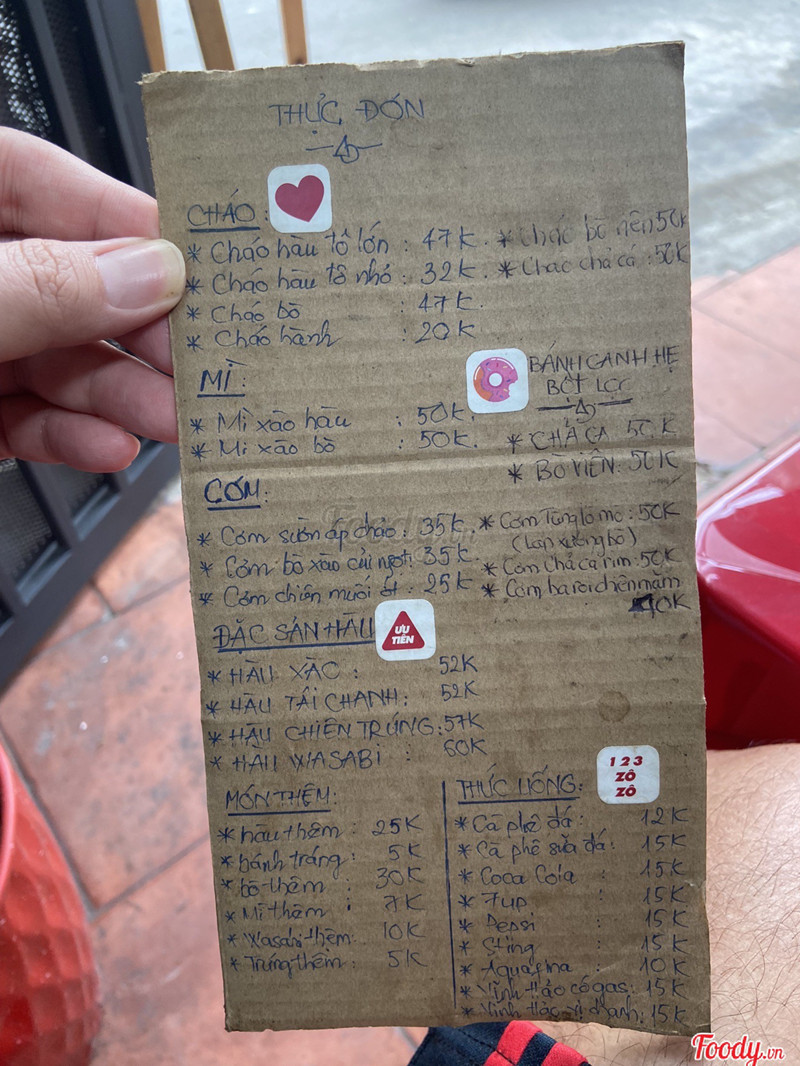 THỰC ĐƠN
CHÁO:
* Cháo hàu tô lớn : 47K
* Cháo hàu tô nhỏ : 32K
* Cháo bò : 47K
* Cháo hành : 20K
* Cháo bò viên 50K
* Cháo chả cá : 50K
MÌ:
* Mì xào hàu : 50K
* Mì xào bò : 50K
BÁNH CANH HẸ
BỘT LỌC
* CHẢ CÁ 50K
* BÒ VIÊN: 50K
CƠM:
* Cơm sườn áp chảo : 35K
* Cơm bò xào củi ngọt : 35K
* Cơm chiên muối ớt : 25K
* Cơm Tung lò mò : 50K
(Lạp xưởng bò)
* Cơm chả cá rim : 50K
* Cơm ba rọi chiên mắm
40K
ĐẶC SẢN HÀU
ƯU
TIÊN
* HÀU XÀO : 52K
* HÀU TÁI CHANH : 52K
* HÀU CHIÊN TRỨNG : 57K
* HÀU WASABI : 60K
MÓN THÊM:
* hàu thêm : 25K
* bánh tráng : 5K
* bò thêm : 30K
* Mì thêm : 7K
* Wasabi thêm : 10K
* Trứng thêm : 5K
1 2 3
ZÔ
ZÔ
THỨC UỐNG:
* Cà phê đá : 12K
* Cà phê sữa đá : 15K
* Coca Cola : 15K
* 7up : 15K
* Pepsi : 15K
* Sting : 15K
* Aquafina : 10K
* Vĩnh Hảo có gas : 15K
* Vĩnh Hảo vị chanh : 15K
Foody.vn